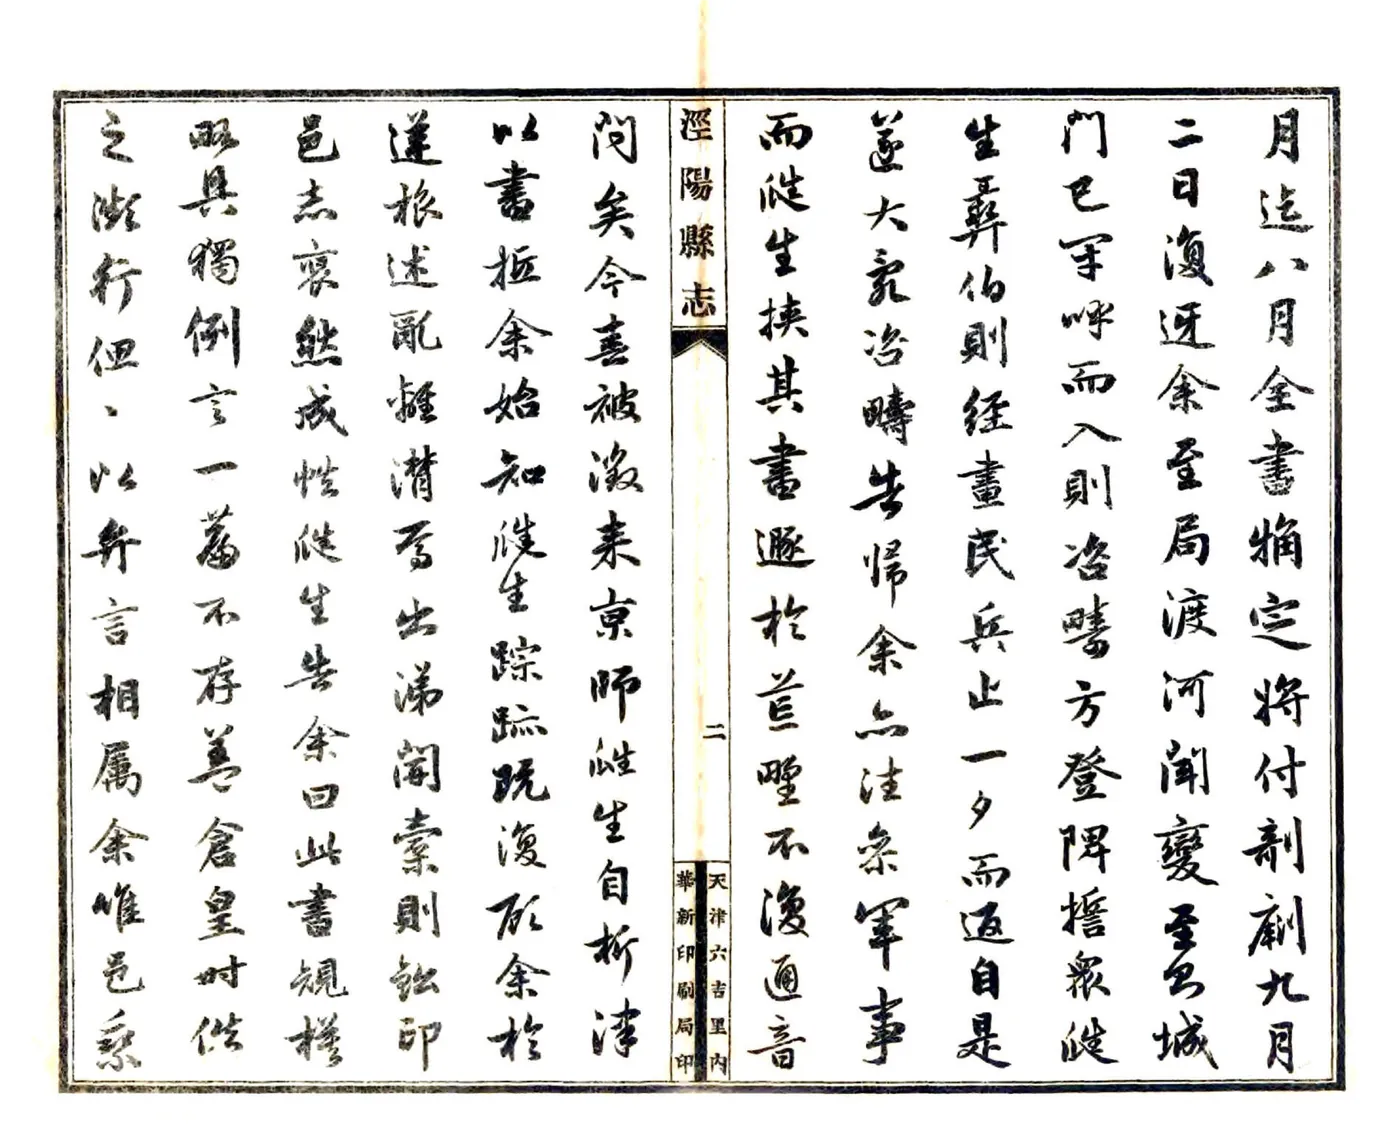 月迄八月全書犕定將付剞劂九月
二日復迓余至局渡河聞變至邑城
門已罕呼而入則咨疇方登陴擔眾陡
生彞伯則經畫民兵止一夕而返自是
遂大亂咨疇告歸余亦往參軍事
而陡生挾其書遯於荒野不復通音
涇陽縣志
二
天津六吉里內
華新印刷局印
問矣今喜被徵来京師陡生自析津
以書抵余始知陡生踪跡既復顧余於
蓮根述亂離潸焉出涕開橐則鉛印
邑志裒然成帙陡生告余曰此書規模
略具獨例言一篇不存蓋倉皇時佚
之濒行但、以弁言相属余唯邑乘